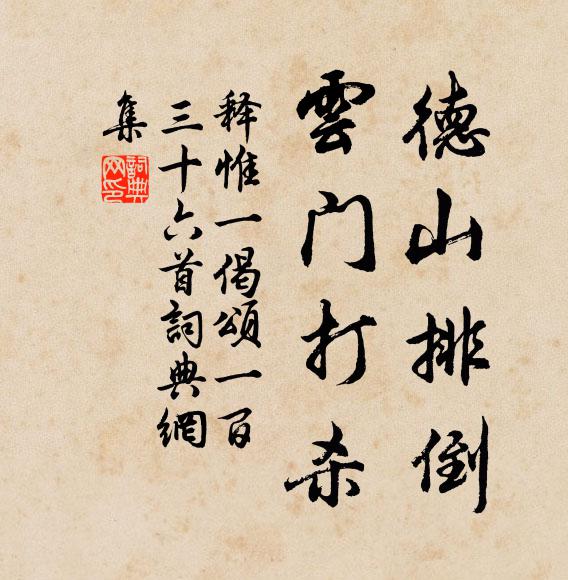 德山排倒
雲门打杀
释惟一偈颂一百
三十六首詞典網
集
詞典
网印